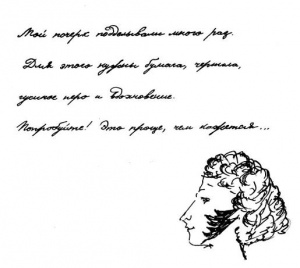 Мой почерк подделывали много раз.
Для этого нужны бумага, чернила,
гусиное перо и вдохновение.
Попробуйте! Это проще, чем кажется...